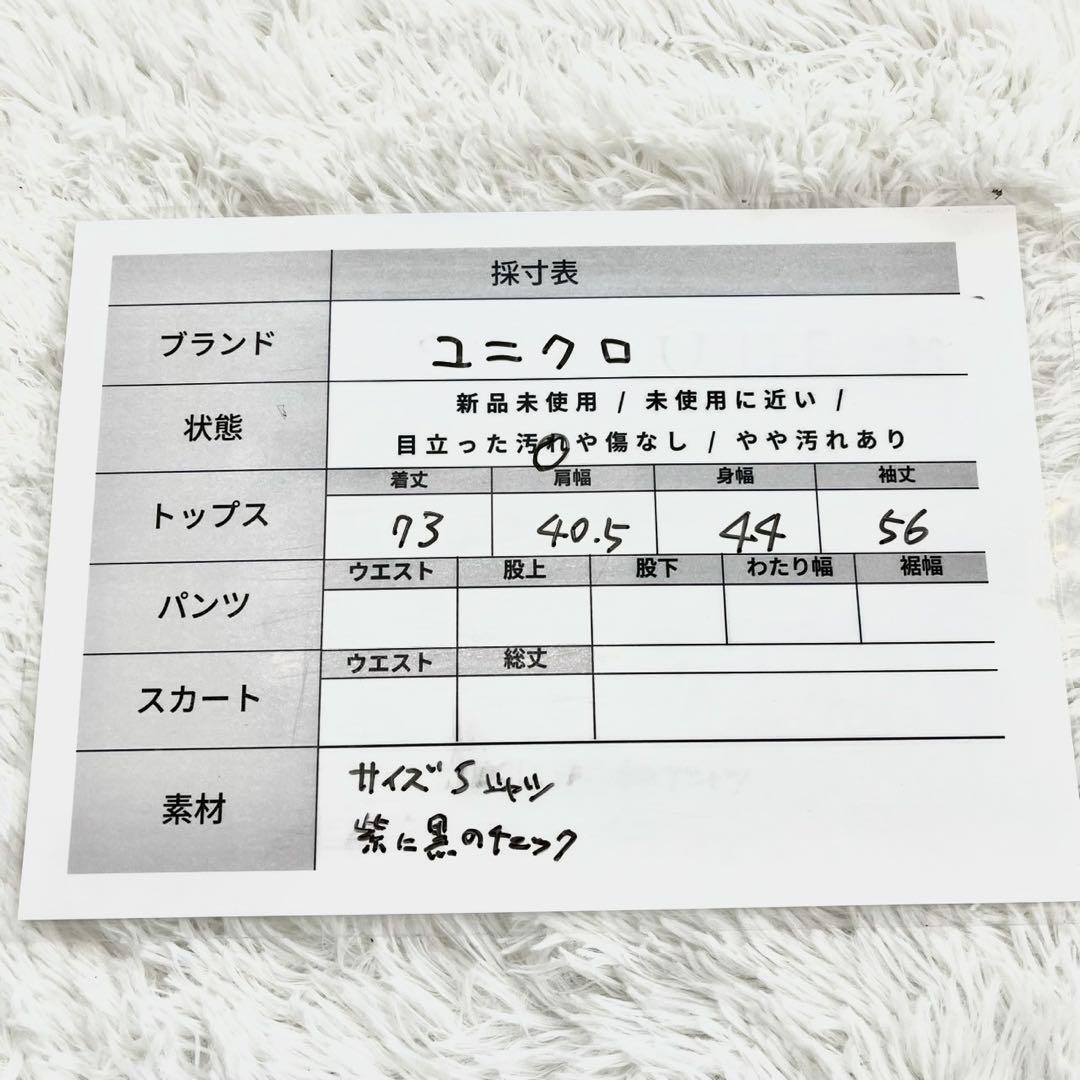 採寸表
ブランド ユニクロ
状態 新品未使用 / 未使用に近い /
目立った汚れや傷なし / やや汚れあり
着丈 肩幅 身幅 袖丈
トップス 73 40.5 44 56
ウエスト 股上 股下 わたり幅 裾幅
パンツ
ウエスト 総丈
スカート
素材 サイズS シャツ
紫に黒のチェック